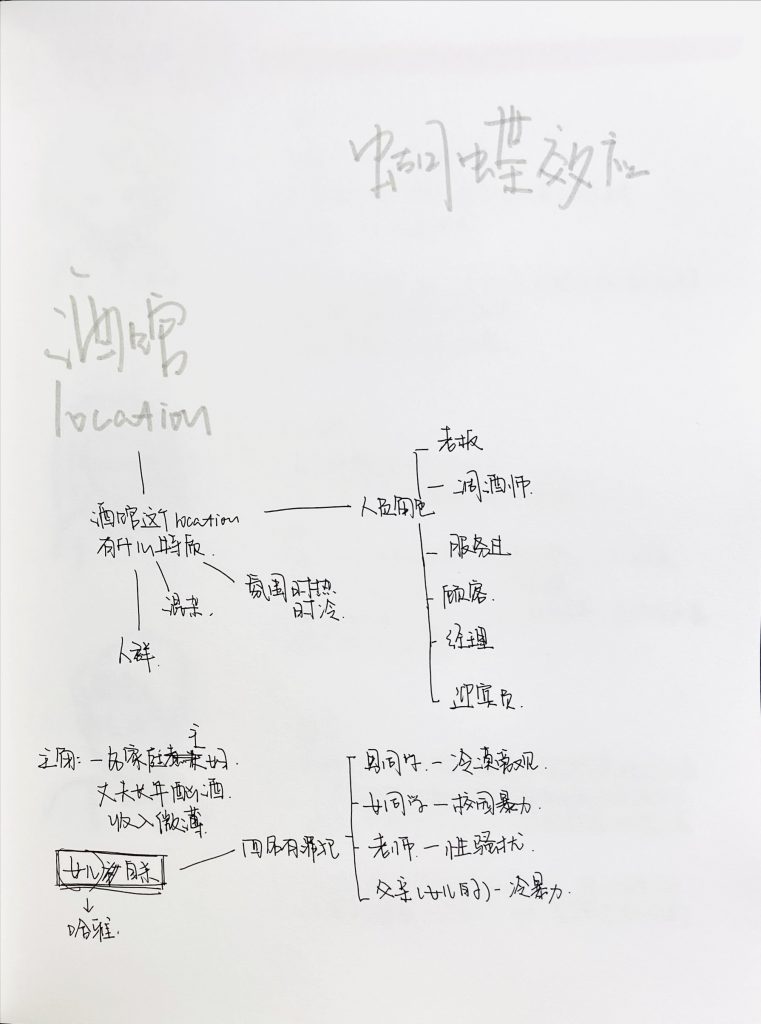 蝴蝶效应
酒馆
location
老板
调酒师
酒馆这个location
有什么特质
人员角色
服务生
氛围时热
时冷
混杂
顾客
经理
人群
迎宾员
主
主角:一名家庭妇
丈夫长年酗酒
收入微薄
男同学-冷漠旁观
女同学-校园暴力
四名有罪犯
老师-性骚扰
女儿自杀
父亲(女儿的)-冷暴力
哈雅